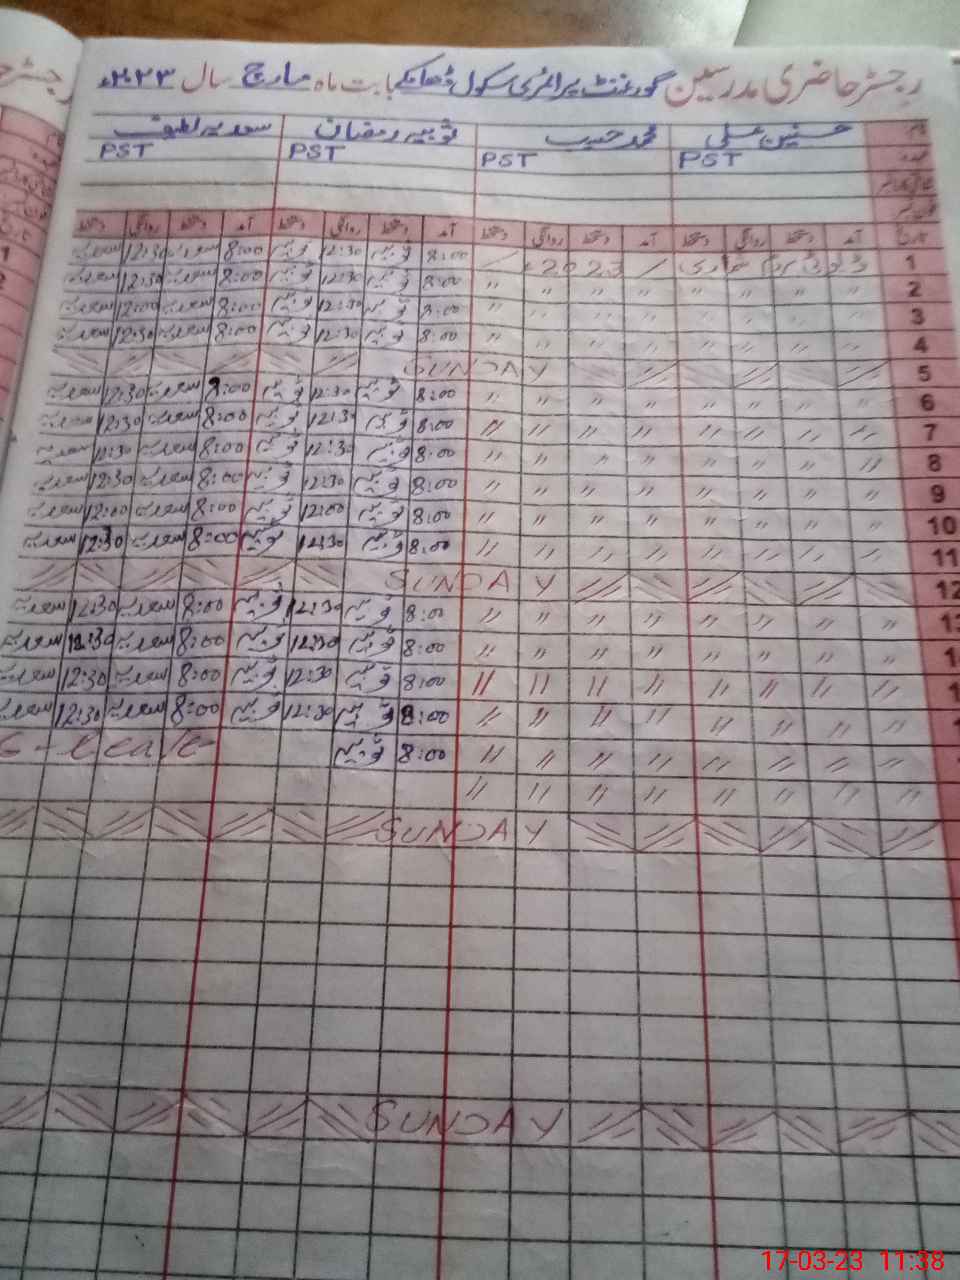 رجسٹر حاضری مدرسین گورنمنٹ پرائمری سکول ڈھامکے بابت ماہ مارچ سال ۲۰۲۳ء
نام حسنین علی محمد حبیب ثوبیہ رمضان سعدیہ لطیف
عہدہ PST PST PST PST
تاریخ آمد دستخط روانگی دستخط آمد دستخط روانگی دستخط آمد دستخط روانگی دستخط آمد دستخط روانگی دستخط
1 ڈیوٹی مردم شماری 2023 8:00 ثوبیہ 12:30 ثوبیہ 8:00 سعدیہ 12:30 سعدیہ
2 " " " " " " " " 8:00 ثوبیہ 12:30 ثوبیہ 8:00 سعدیہ 12:30 سعدیہ
3 " " " " " " " " 8:00 ثوبیہ 12:30 ثوبیہ 8:00 سعدیہ 12:00 سعدیہ
4 " " " " " " " " 8:00 ثوبیہ 12:30 ثوبیہ 8:00 سعدیہ 12:30 سعدیہ
5 SUNDAY
6 " " " " " " " " 8:00 ثوبیہ 12:30 ثوبیہ 8:00 سعدیہ 12:30 سعدیہ
7 " " " " " " " " 8:00 ثوبیہ 12:30 ثوبیہ 8:00 سعدیہ 12:30 سعدیہ
8 " " " " " " " " 8:00 ثوبیہ 12:30 ثوبیہ 8:00 سعدیہ 12:30 سعدیہ
9 " " " " " " " " 8:00 ثوبیہ 12:30 ثوبیہ 8:00 سعدیہ 12:30 سعدیہ
10 " " " " " " " " 8:00 ثوبیہ 12:00 ثوبیہ 8:00 سعدیہ 12:00 سعدیہ
11 " " " " " " " " 8:00 ثوبیہ 12:30 ثوبیہ 8:00 سعدیہ 12:30 سعدیہ
12 SUNDAY
13 " " " " " " " " 8:00 ثوبیہ 12:30 ثوبیہ 8:00 سعدیہ 12:30 سعدیہ
" " " " " " " " 8:00 ثوبیہ 12:30 ثوبیہ 8:00 سعدیہ 12:30 سعدیہ
" " " " " " " " 8:00 ثوبیہ 12:30 ثوبیہ 8:00 سعدیہ 12:30 سعدیہ
" " " " " " " " 8:00 ثوبیہ 12:30 ثوبیہ 8:00 سعدیہ 12:30 سعدیہ
" " " " " " " " 8:00 ثوبیہ leave
" " " " " " " "
SUNDAY
SUNDAY
17-03-23 11:38